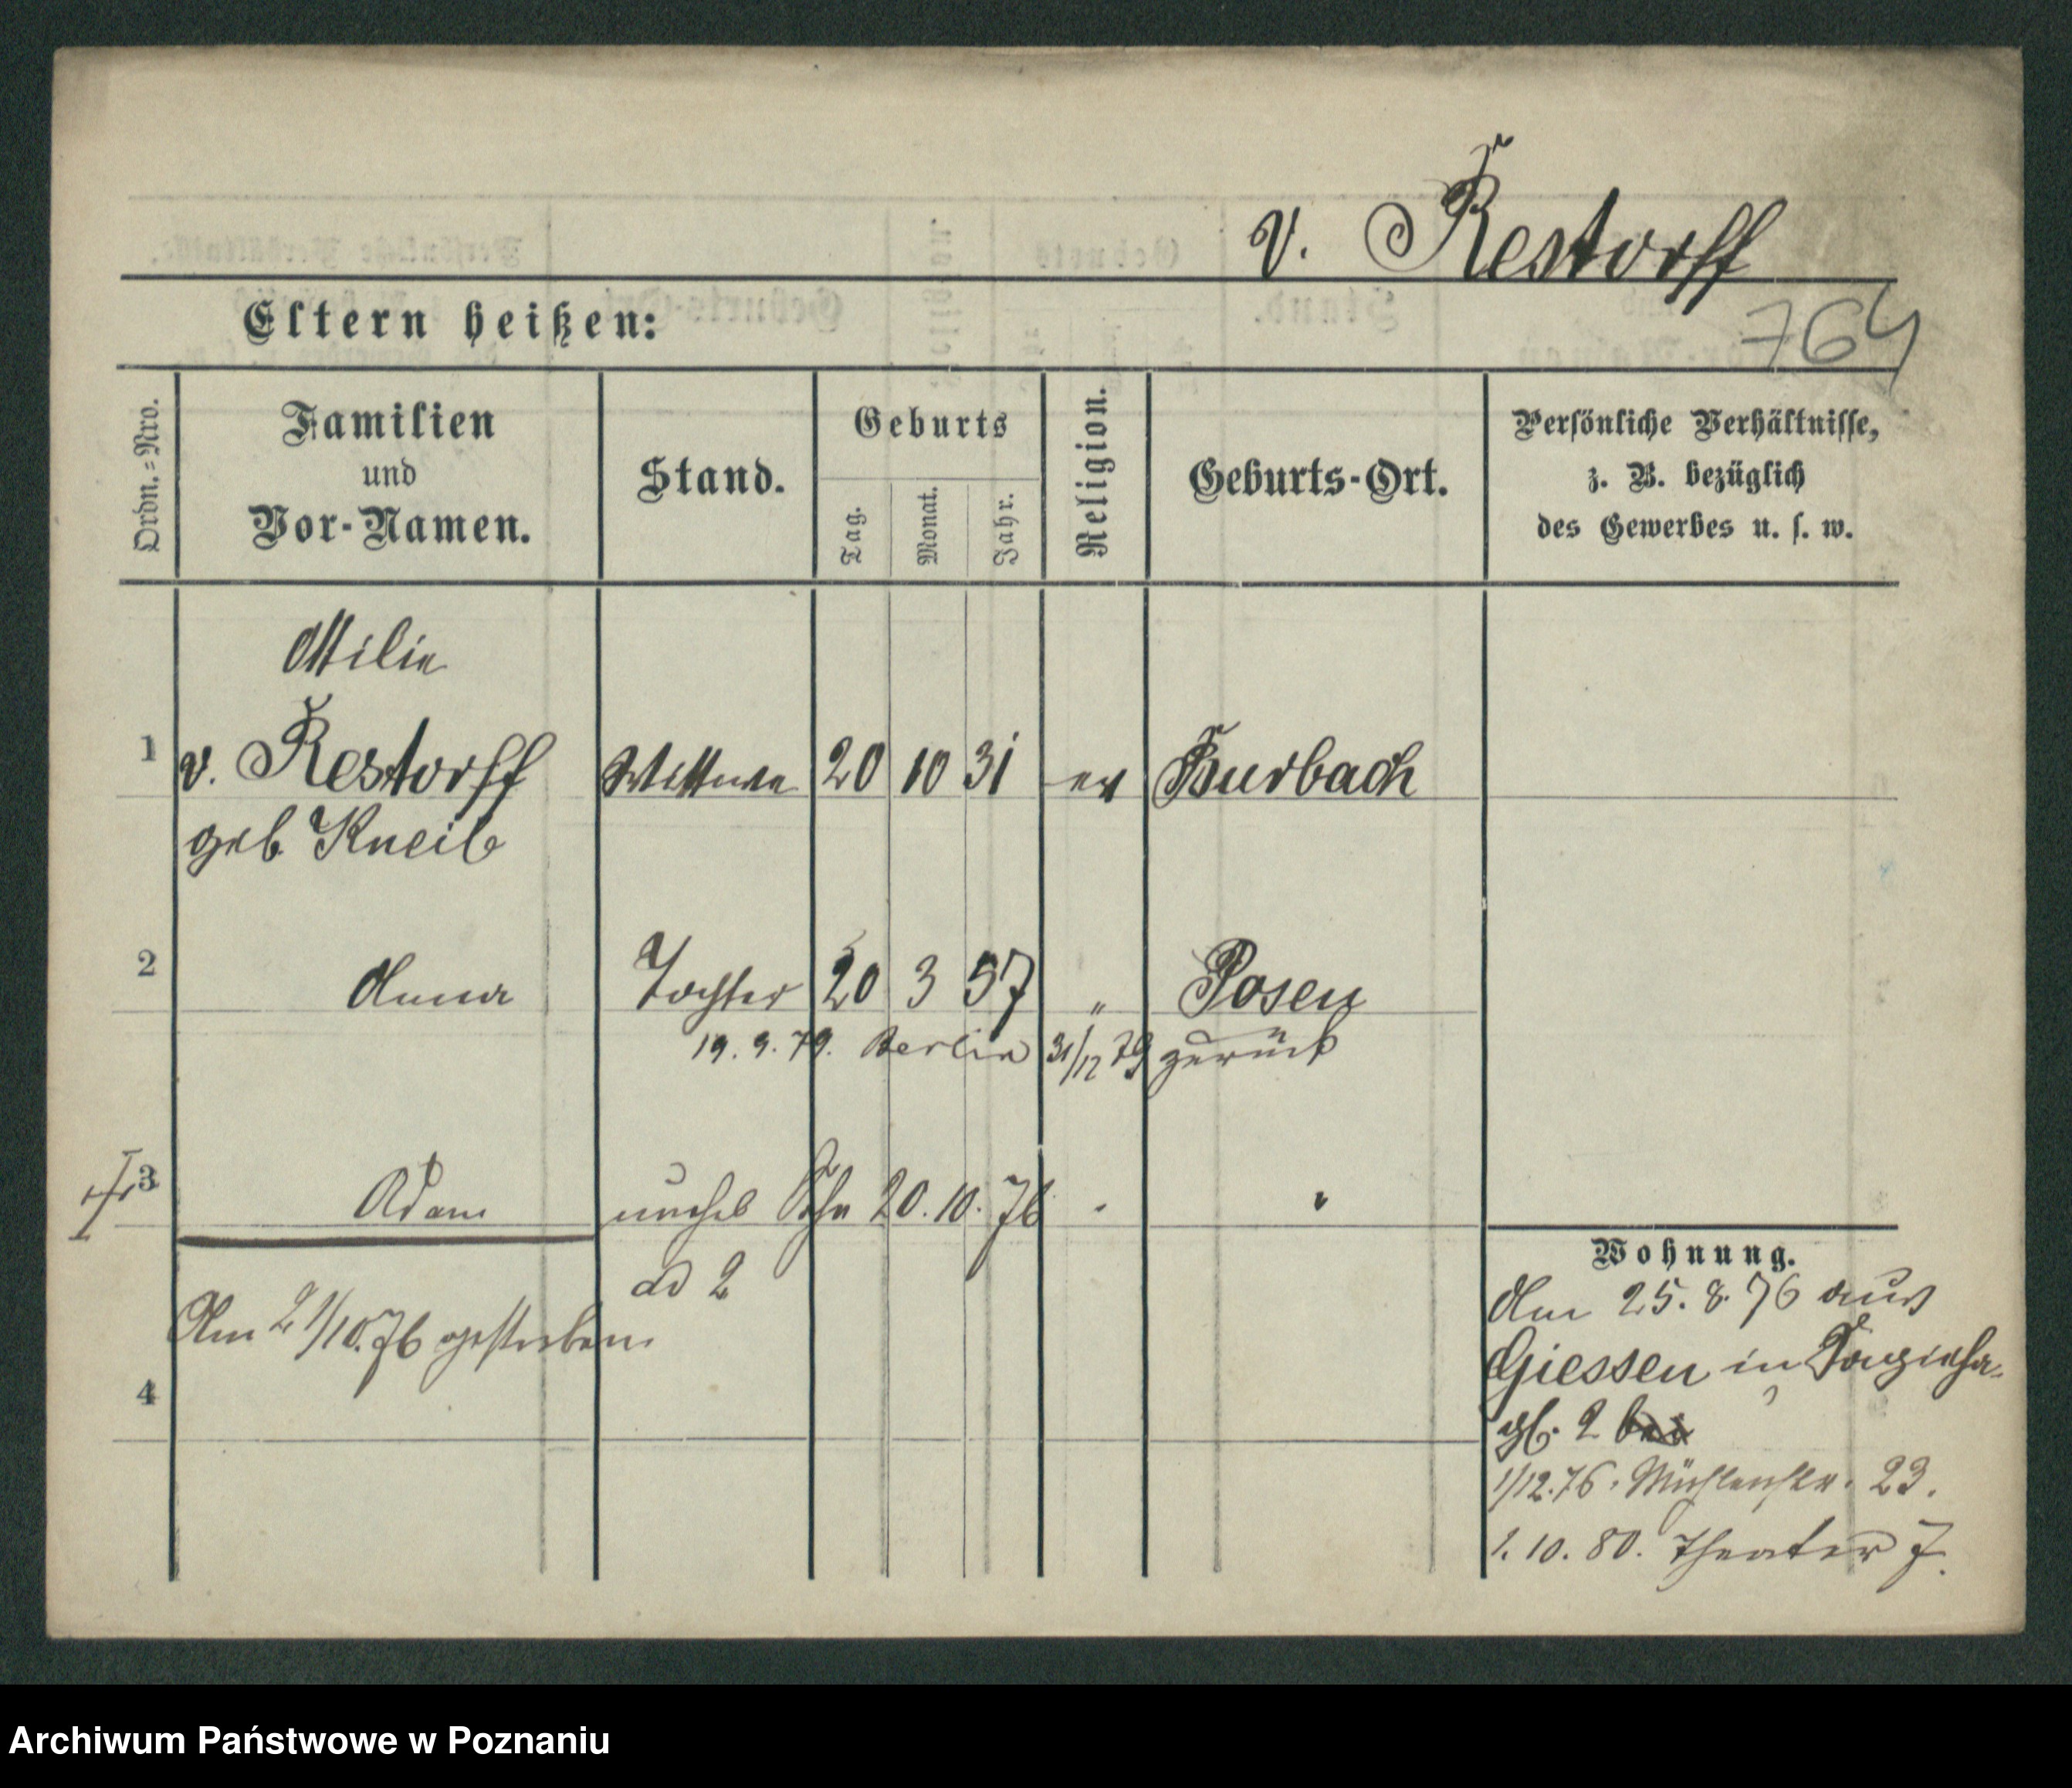 v. Restorff
764
Eltern heißen:
Ordn.=Nro.
Familien
und
Vor-Namen.
Stand.
Geburts
Tag.
Monat.
Jahr.
Religion.
Geburts-Ort.
Persönliche Verhältnisse,
z. B. bezüglich
des Gewerbes u. s. w.
Ottilie
1 v. Restorff Wittwe 20 10 31 ev Burbach
geb. Kneib
2 Anna Tochter 20 3 57 „ Posen
19. 9. 79. Berlin 31/12 79 zurück
3 Adam unehel Sohn 20. 10. 76 „ „
ad 2
Am 21/10.76 gestorben.
4
Wohnung.
Am 25. 8. 76 aus
Giessen in
2 bei
1/12.76. Mühlenstr. 23.
1. 10. 80. Theater 7.
Archiwum Państwowe w Poznaniu